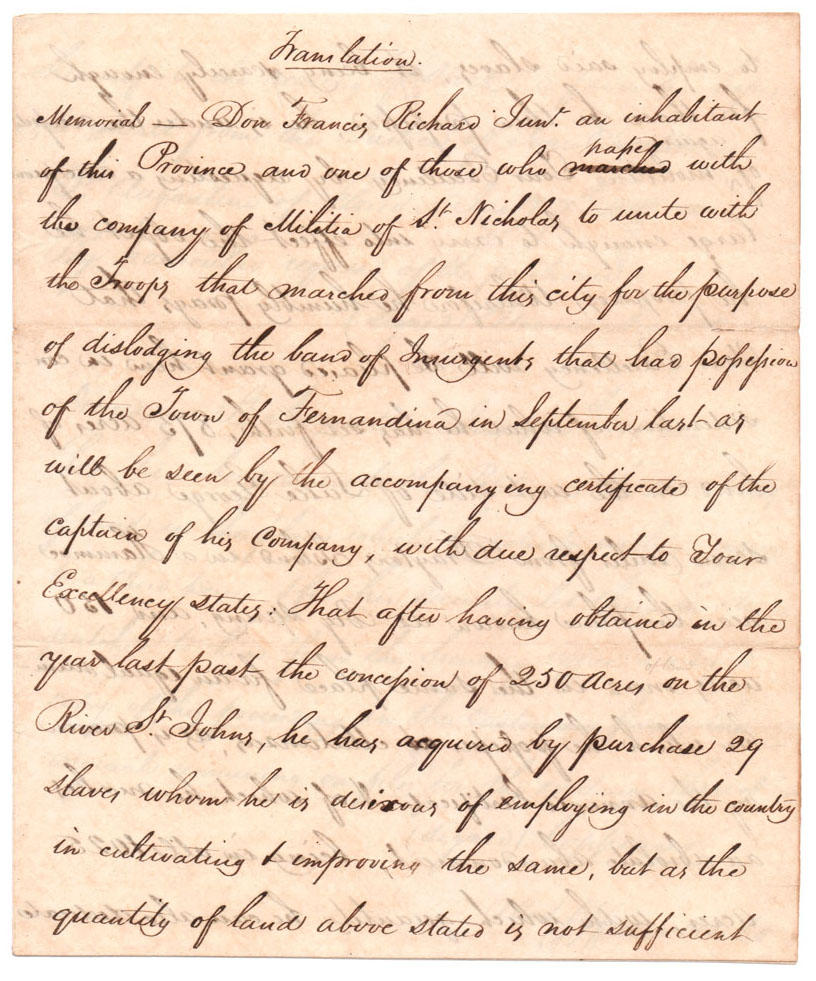 Translation.
Memorial — Don Francis Richard Junr. an inhabitant
of this Province and one of those who marched passed with
the company of Militia of St. Nicholas to unite with
the Troops that marched from this city for the purpose
of dislodging the band of Insurgents that had possession
of the Town of Fernandina in September last as
will be seen by the accompanying certificate of the
captain of his Company, with due respect to Your
Excellency states: That after having obtained in the
year last past the concession of 250 acres on the
River St. Johns, he has acquired by purchase 29
slaves whom he is desirous of employing in the country
in cultivating & improving the same, but as the
quantity of land above stated is not sufficient